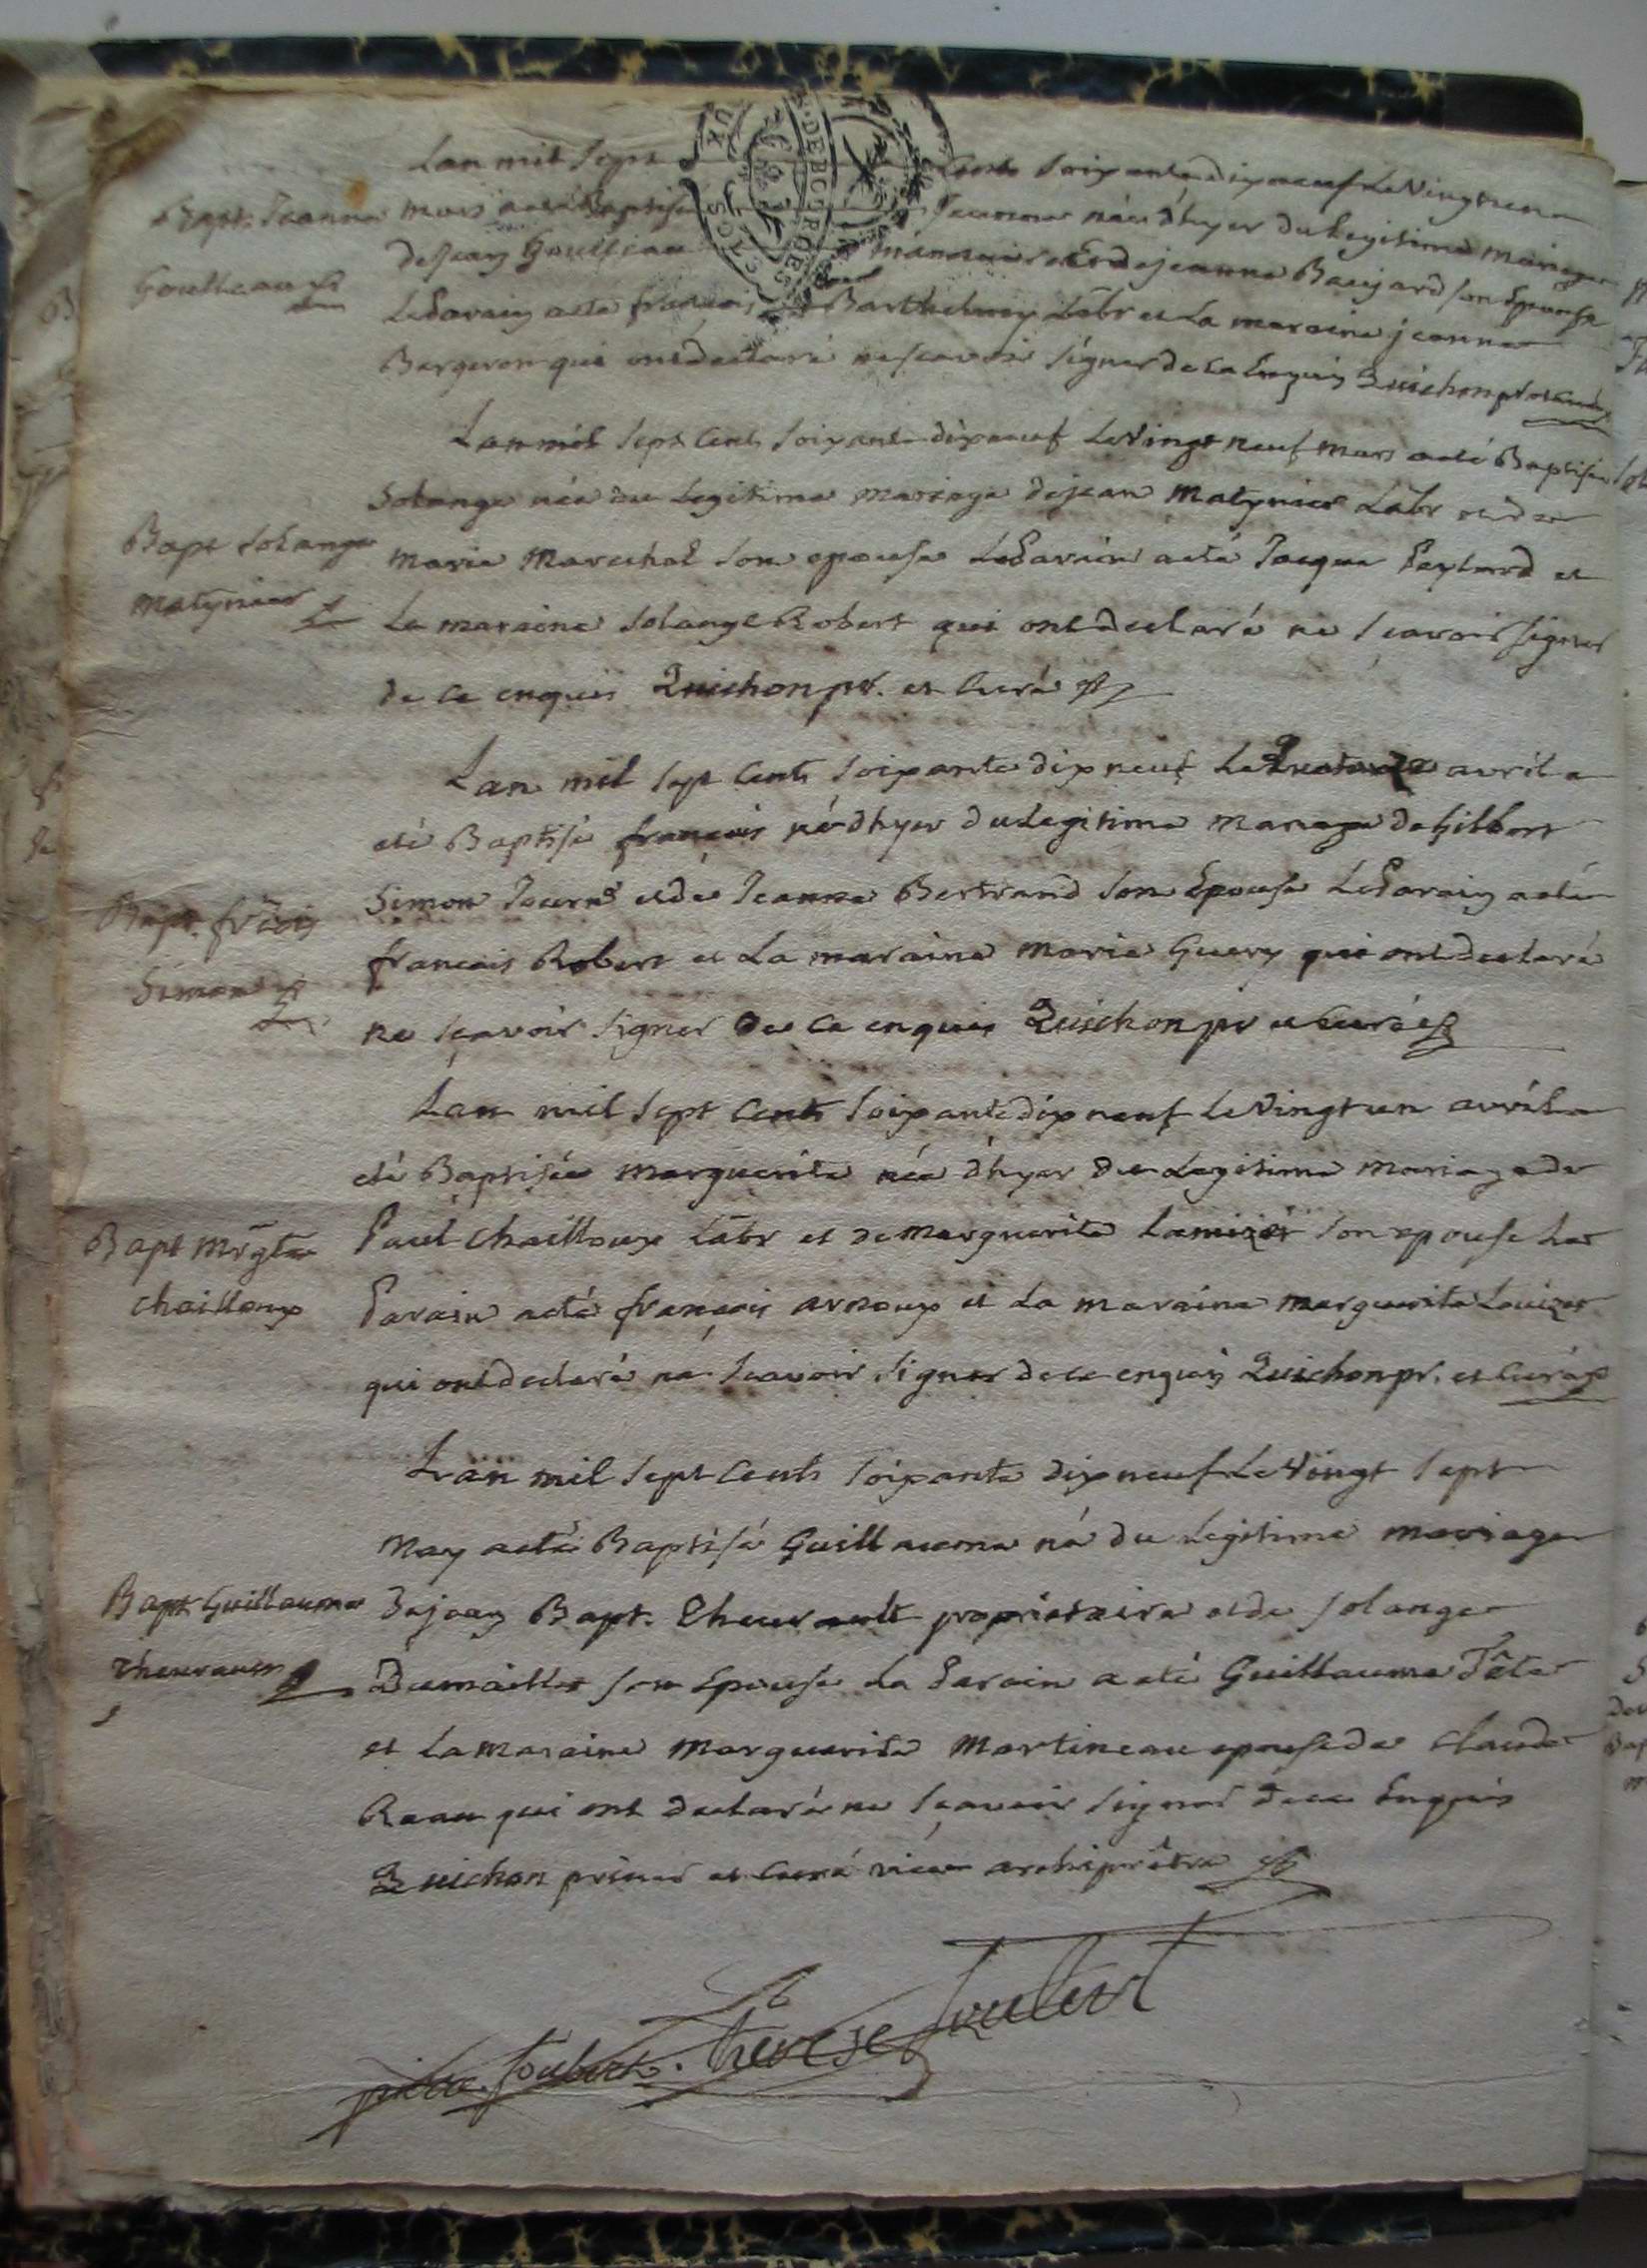 Lan mil sept Cents soixante dix neuf Le Vingt un
Bapt. Jeanne
Goulleau
mars a eté Baptisé Jeanne née d'hyer du Legitime mariage
de jean Goulleau manouvr et de jeanne Baujard son Epouse
Le Parain a eté francois Barthelmy Labr et La maraine jeanne
Bergeron qui ont declaré ne scavoir signer de ce Enquis Quichon pr et curé
Lan mil sept Cents soixante dix neuf Le Vingt neuf mars a eté Baptisée
Bapt Solange
matynier
Solange née du Legitime mariage de jean matynier Labr et de
marie marechal son epouse Le Parain a eté Jacque Paylard et
La maraine solange Robert qui ont declaré ne scavoir signer
de ce enquis Quichon pr. et Curé
Lan mil sept Cents soixante dix neuf Le Quatorze avril a
eté Baptisé francois né d'hyer du Legitime mariage de gilbert
Bapt. frcois
Simon
Simon Journr et de Jeanne Bertrand son Epouse Le Parain a eté
francois Robert et La maraine marie Guery qui ont declaré
ne scavoir signer de ce enquis Quichon pr et Curé
Lan mil sept Cents soixante dix neuf Le Vingt un avril a
eté Baptisée marguerite née d'hyer du Legitime mariage de
Bapt mrgte
chailloux
Paul chailloux Labr et de marguerite son epouse Le
Parain a eté francois arnoux et La maraine marguerite
qui ont declaré ne scavoir signer de ce enquis Quichon pr. et Curé
Lan mil sept Cents soixante dix neuf Le Vingt sept
may a eté Baptisé Guillaume né du Legitime mariage
Bapt Guillaume
Theurault
de jean Bapt. Theurault proprietaire et de solange
Dumaillet son Epouse Le Parain a eté Guillaume Tête
et La maraine marguerite martineau epouse de claude
Reau qui ont declaré ne scavoir signer de ce Enquis
Quichon prieur et Curé vicer archiprêtre
Soubert. therese Joubert